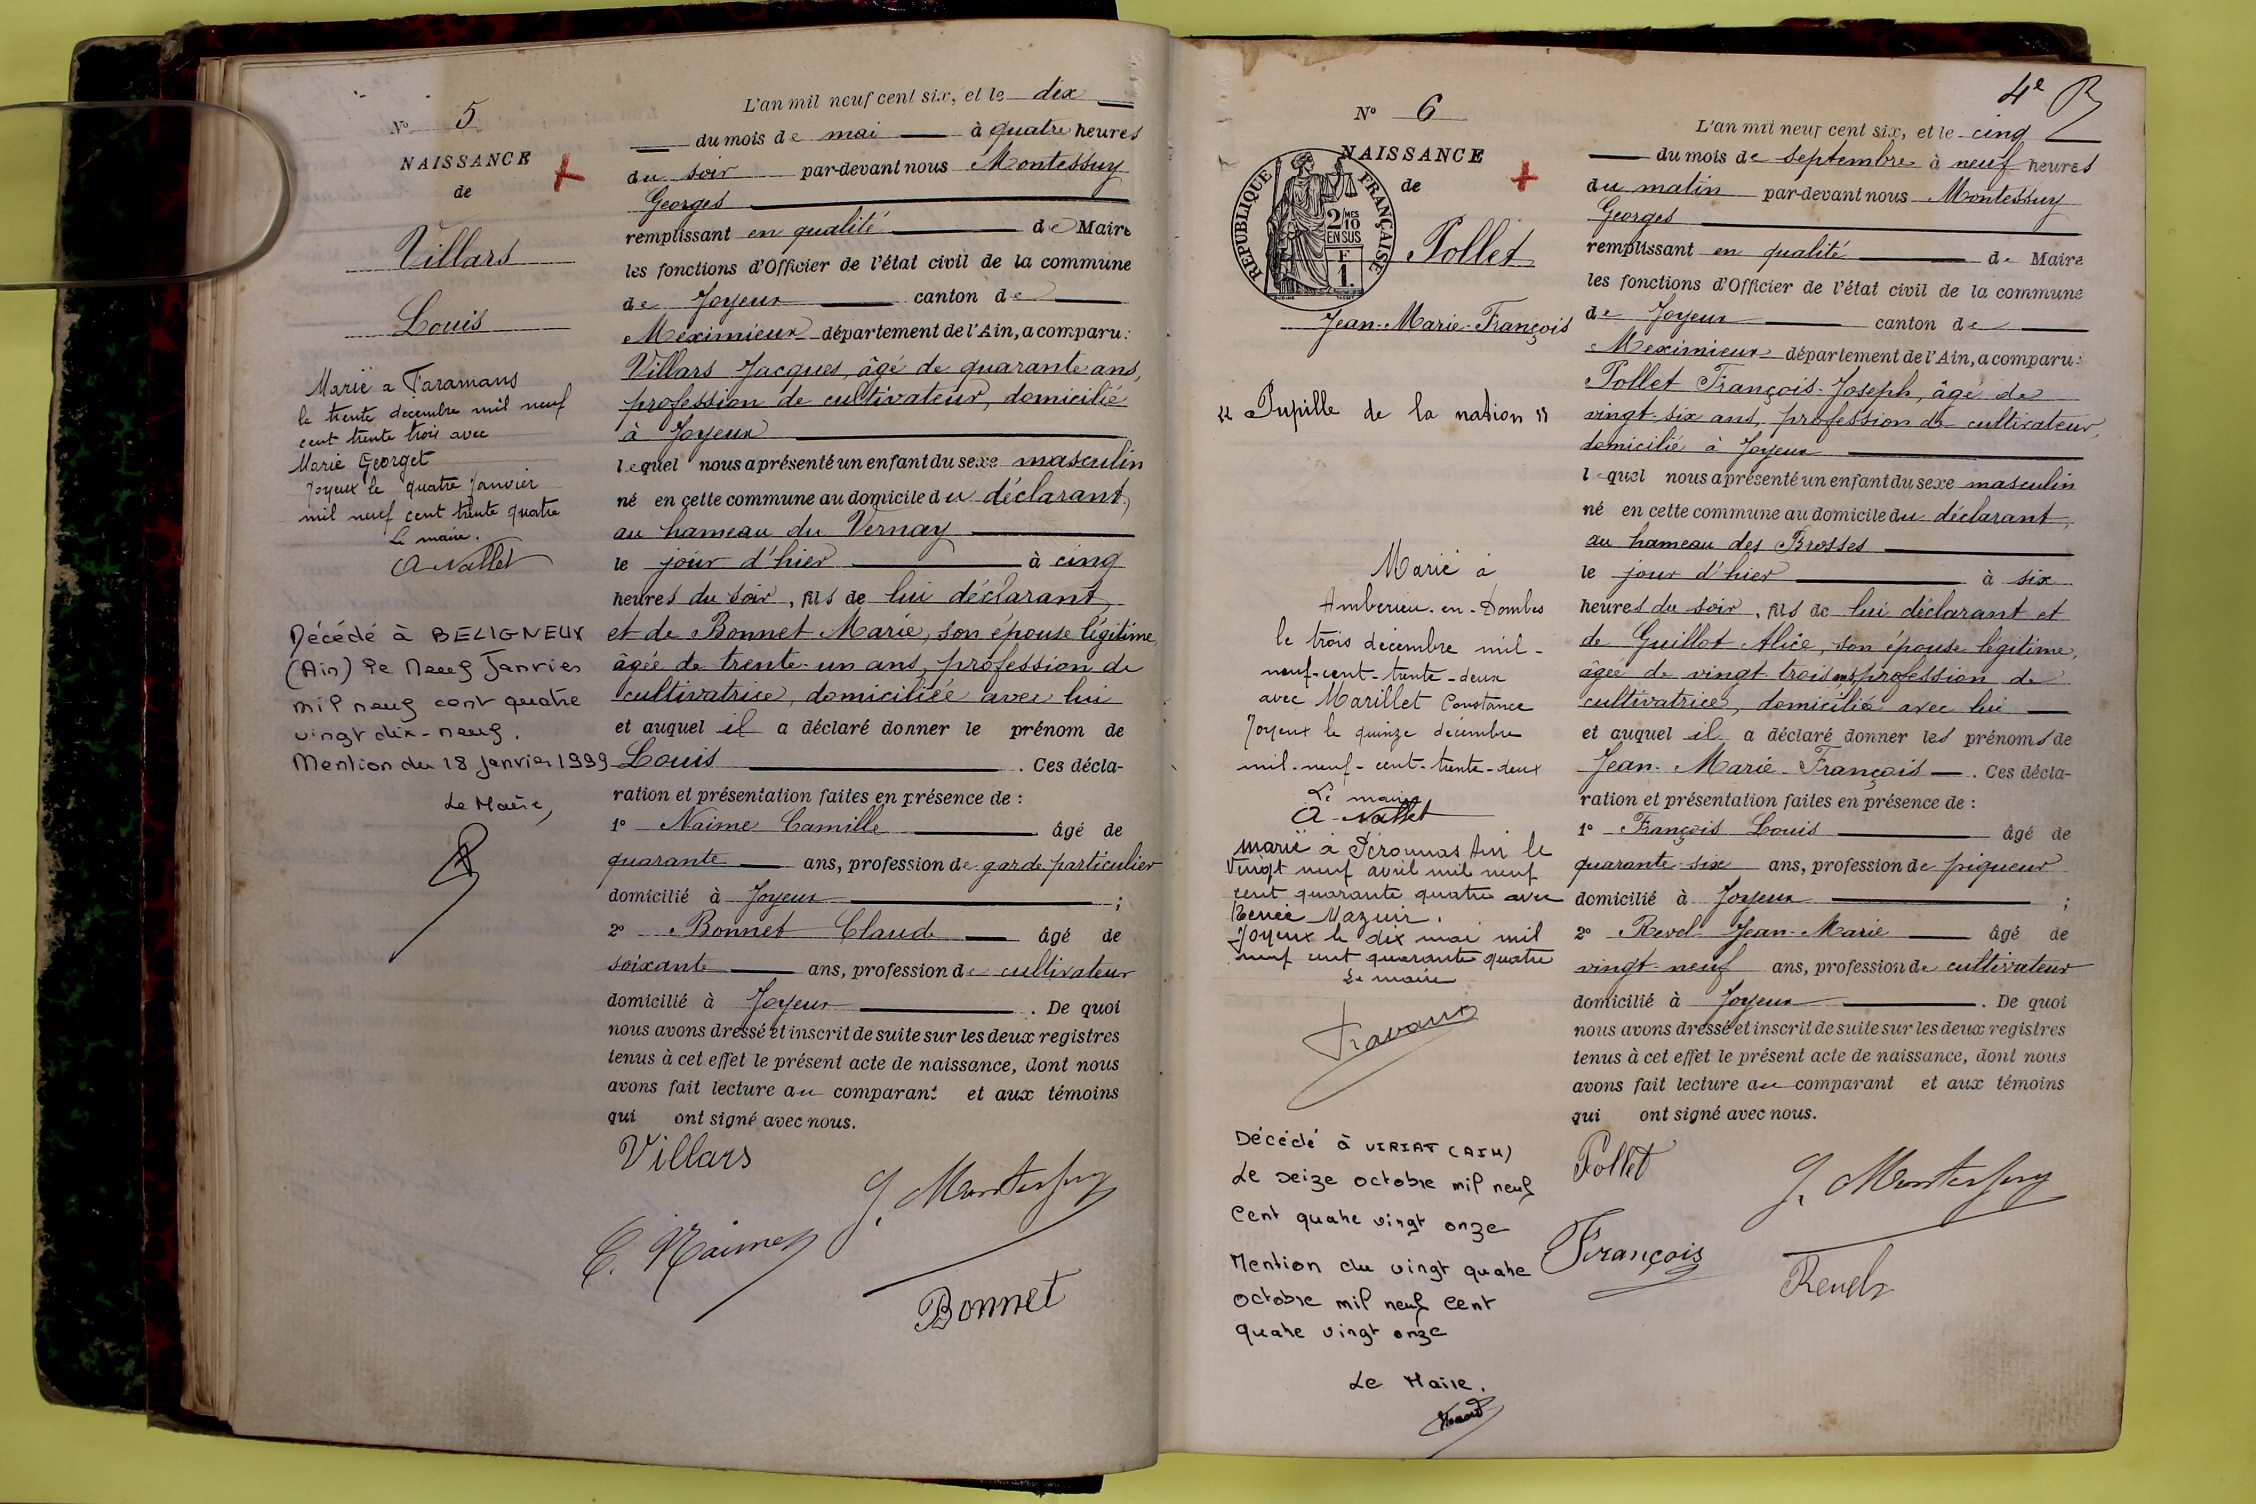 L'an mil neuf cent six, et le dix
du mois de mai à quatre heures
du soir par-devant nous Montessuy
Georges
remplissant en qualité de Maire
les fonctions d'Officier de l'état civil de la commune
de Joyeux canton de
Meximieux département de l'Ain, a comparu :
Villars Jacques, âgé de quarante ans,
profession de cultivateur, domicilié
à Joyeux
lequel nous a présenté un enfant du sexe masculin
né en cette commune au domicile du déclarant,
au hameau du Vernay
le jour d'hier à cinq
heures du soir, fils de lui déclarant,
et de Bonnet Marie, son épouse légitime,
âgée de trente-un ans, profession de
cultivatrice, domiciliée avec lui
et auquel il a déclaré donner le prénom de
Louis . Ces décla-
ration et présentation faites en présence de :
1º Naime Camille âgé de
quarante ans, profession de garde particulier
domicilié à Joyeux ;
2º Bonnet Claude âgé de
soixante ans, profession de cultivateur
domicilié à Joyeux . De quoi
nous avons dressé et inscrit de suite sur les deux registres
tenus à cet effet le présent acte de naissance, dont nous
avons fait lecture au comparant et aux témoins
qui ont signé avec nous.
Villars
G. Montessuy
C. Naime
Bonnet
Nº 5
NAISSANCE
de
Villars
Louis
Marié a Faramans
le trente décembre mil neuf
cent trente trois avec
Marie Georget
Joyeux le quatre Janvier
mil neuf cent trente quatre
Le maire.
A Nallet
Décédé à BELIGNEUX
(Ain) le Neuf Janvier
mil neuf cent quatre
vingt dix-neuf.
Mention du 18 janvier 1999
Le Maire,
4e
Nº 6
NAISSANCE
de
RÉPUBLIQUE FRANÇAISE
2/10MES
EN SUS
F
1.
Pollet
Jean-Marie-François
"Pupille de la nation"
Marié à
Amberieu-en-Dombes
le trois décembre mil-
neuf-cent-trente-deux
avec Marillet Constance
Joyeux le quinze décembre
mil-neuf-cent-trente-deux
Le maire
A Nallet
Marié à Péronnas Ain le
Vingt neuf avril mil neuf
cent quarante quatre avec
Renée Mazuir.
Joyeux le dix mai mil
neuf cent quarante quatre
Le maire
Décédé à VIRIAT (AIN)
Le seize octobre mil neuf
Cent quatre vingt onze
Mention du vingt quatre
octobre mil neuf Cent
quatre vingt onze
Le Maire.
L'an mil neuf cent six, et le cinq
du mois de septembre à neuf heures
du matin par-devant nous Montessuy
Georges
remplissant en qualité de Maire
les fonctions d'Officier de l'état civil de la commune
de Joyeux canton de
Meximieux département de l'Ain, a comparu :
Pollet François-Joseph, âgé de
vingt-six ans, profession de cultivateur,
domicilié à Joyeux
lequel nous a présenté un enfant du sexe masculin
né en cette commune au domicile du déclarant,
au hameau des Brosses
le jour d'hier à six
heures du soir, fils de lui déclarant et
de Guillot Alice, son épouse légitime,
âgée de vingt-trois ans, profession de
cultivatrice, domiciliée avec lui
et auquel il a déclaré donner les prénoms de
Jean-Marie-François . Ces décla-
ration et présentation faites en présence de :
1º François Louis âgé de
quarante-six ans, profession de piqueur
domicilié à Joyeux ;
2º Revel Jean-Marie âgé de
vingt-neuf ans, profession de cultivateur
domicilié à Joyeux . De quoi
nous avons dressé et inscrit de suite sur les deux registres
tenus à cet effet le présent acte de naissance, dont nous
avons fait lecture au comparant et aux témoins
qui ont signé avec nous.
Pollet
G. Montessuy
François
Revel